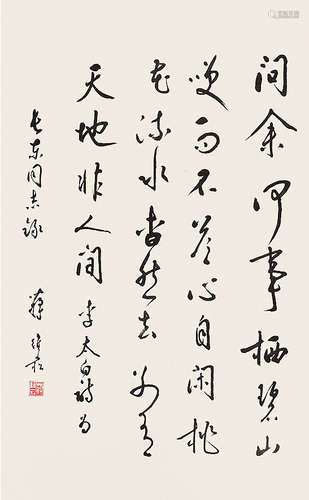 问余何事栖碧山
笑而不答心自闲桃
花流水杳然去别有
天地非人间 李太白诗为
长东同志录
蒋维崧